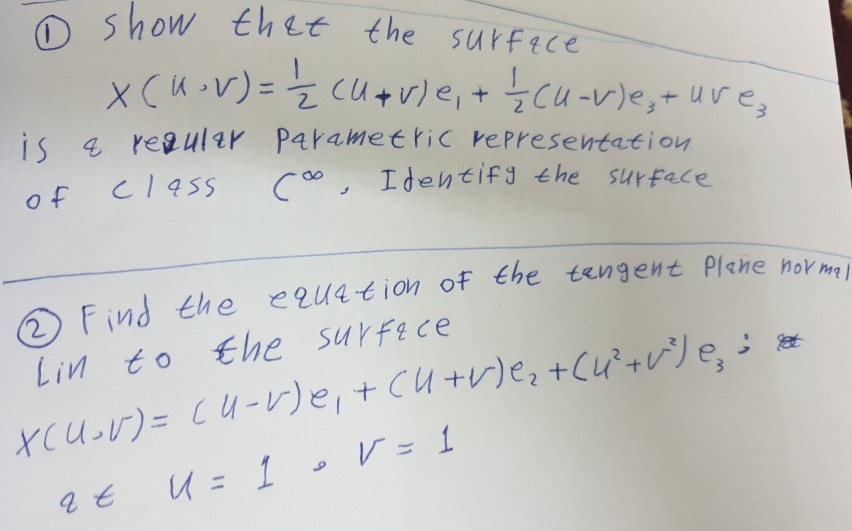 ① show that the surface
X(u,v)=½(u+v)e₁+½(u-v)e₃+uve₃
is a regular parametric representation
of class C^∞, Identify the surface
② Find the equation of the tangent Plane normal
Lin to the surface
X(u,v)=(u-v)e₁+(u+v)e₂+(u²+v²)e₃;
at u=1, v=1